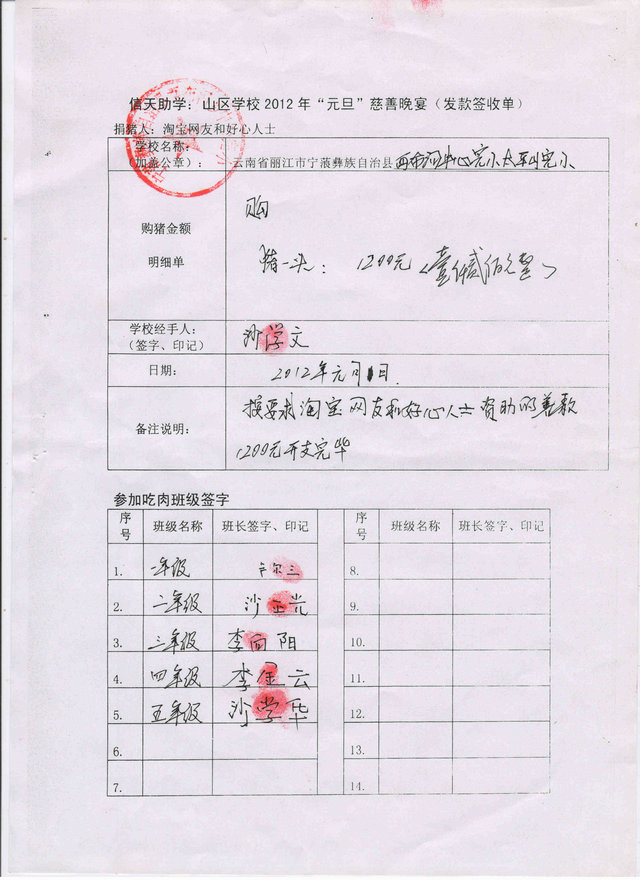 信天助学：山区学校2012年“元旦”慈善晚宴（发款签收单）
捐猪人：淘宝网友和好心人士
学校名称：
（加盖公章）：云南省丽江市宁蒗彝族自治县
中心完小太平山完小
购猪金额
明细单
购
猪一头：1200元（壹仟贰佰元整）
学校经手人：
（签字、印记）
沙学文
日期：
2012年元月1日.
备注说明：
按要求淘宝网友和好心人士资助的善款
1200元开支完毕
参加吃肉班级签字
序号 班级名称 班长签字、印记 序号 班级名称 班长签字、印记
1. 一年级 8.
2. 二年级 沙正光 9.
3. 三年级 李向阳 10.
4. 四年级 李金云 11.
5. 五年级 沙学华 12.
6. 13.
7. 14.